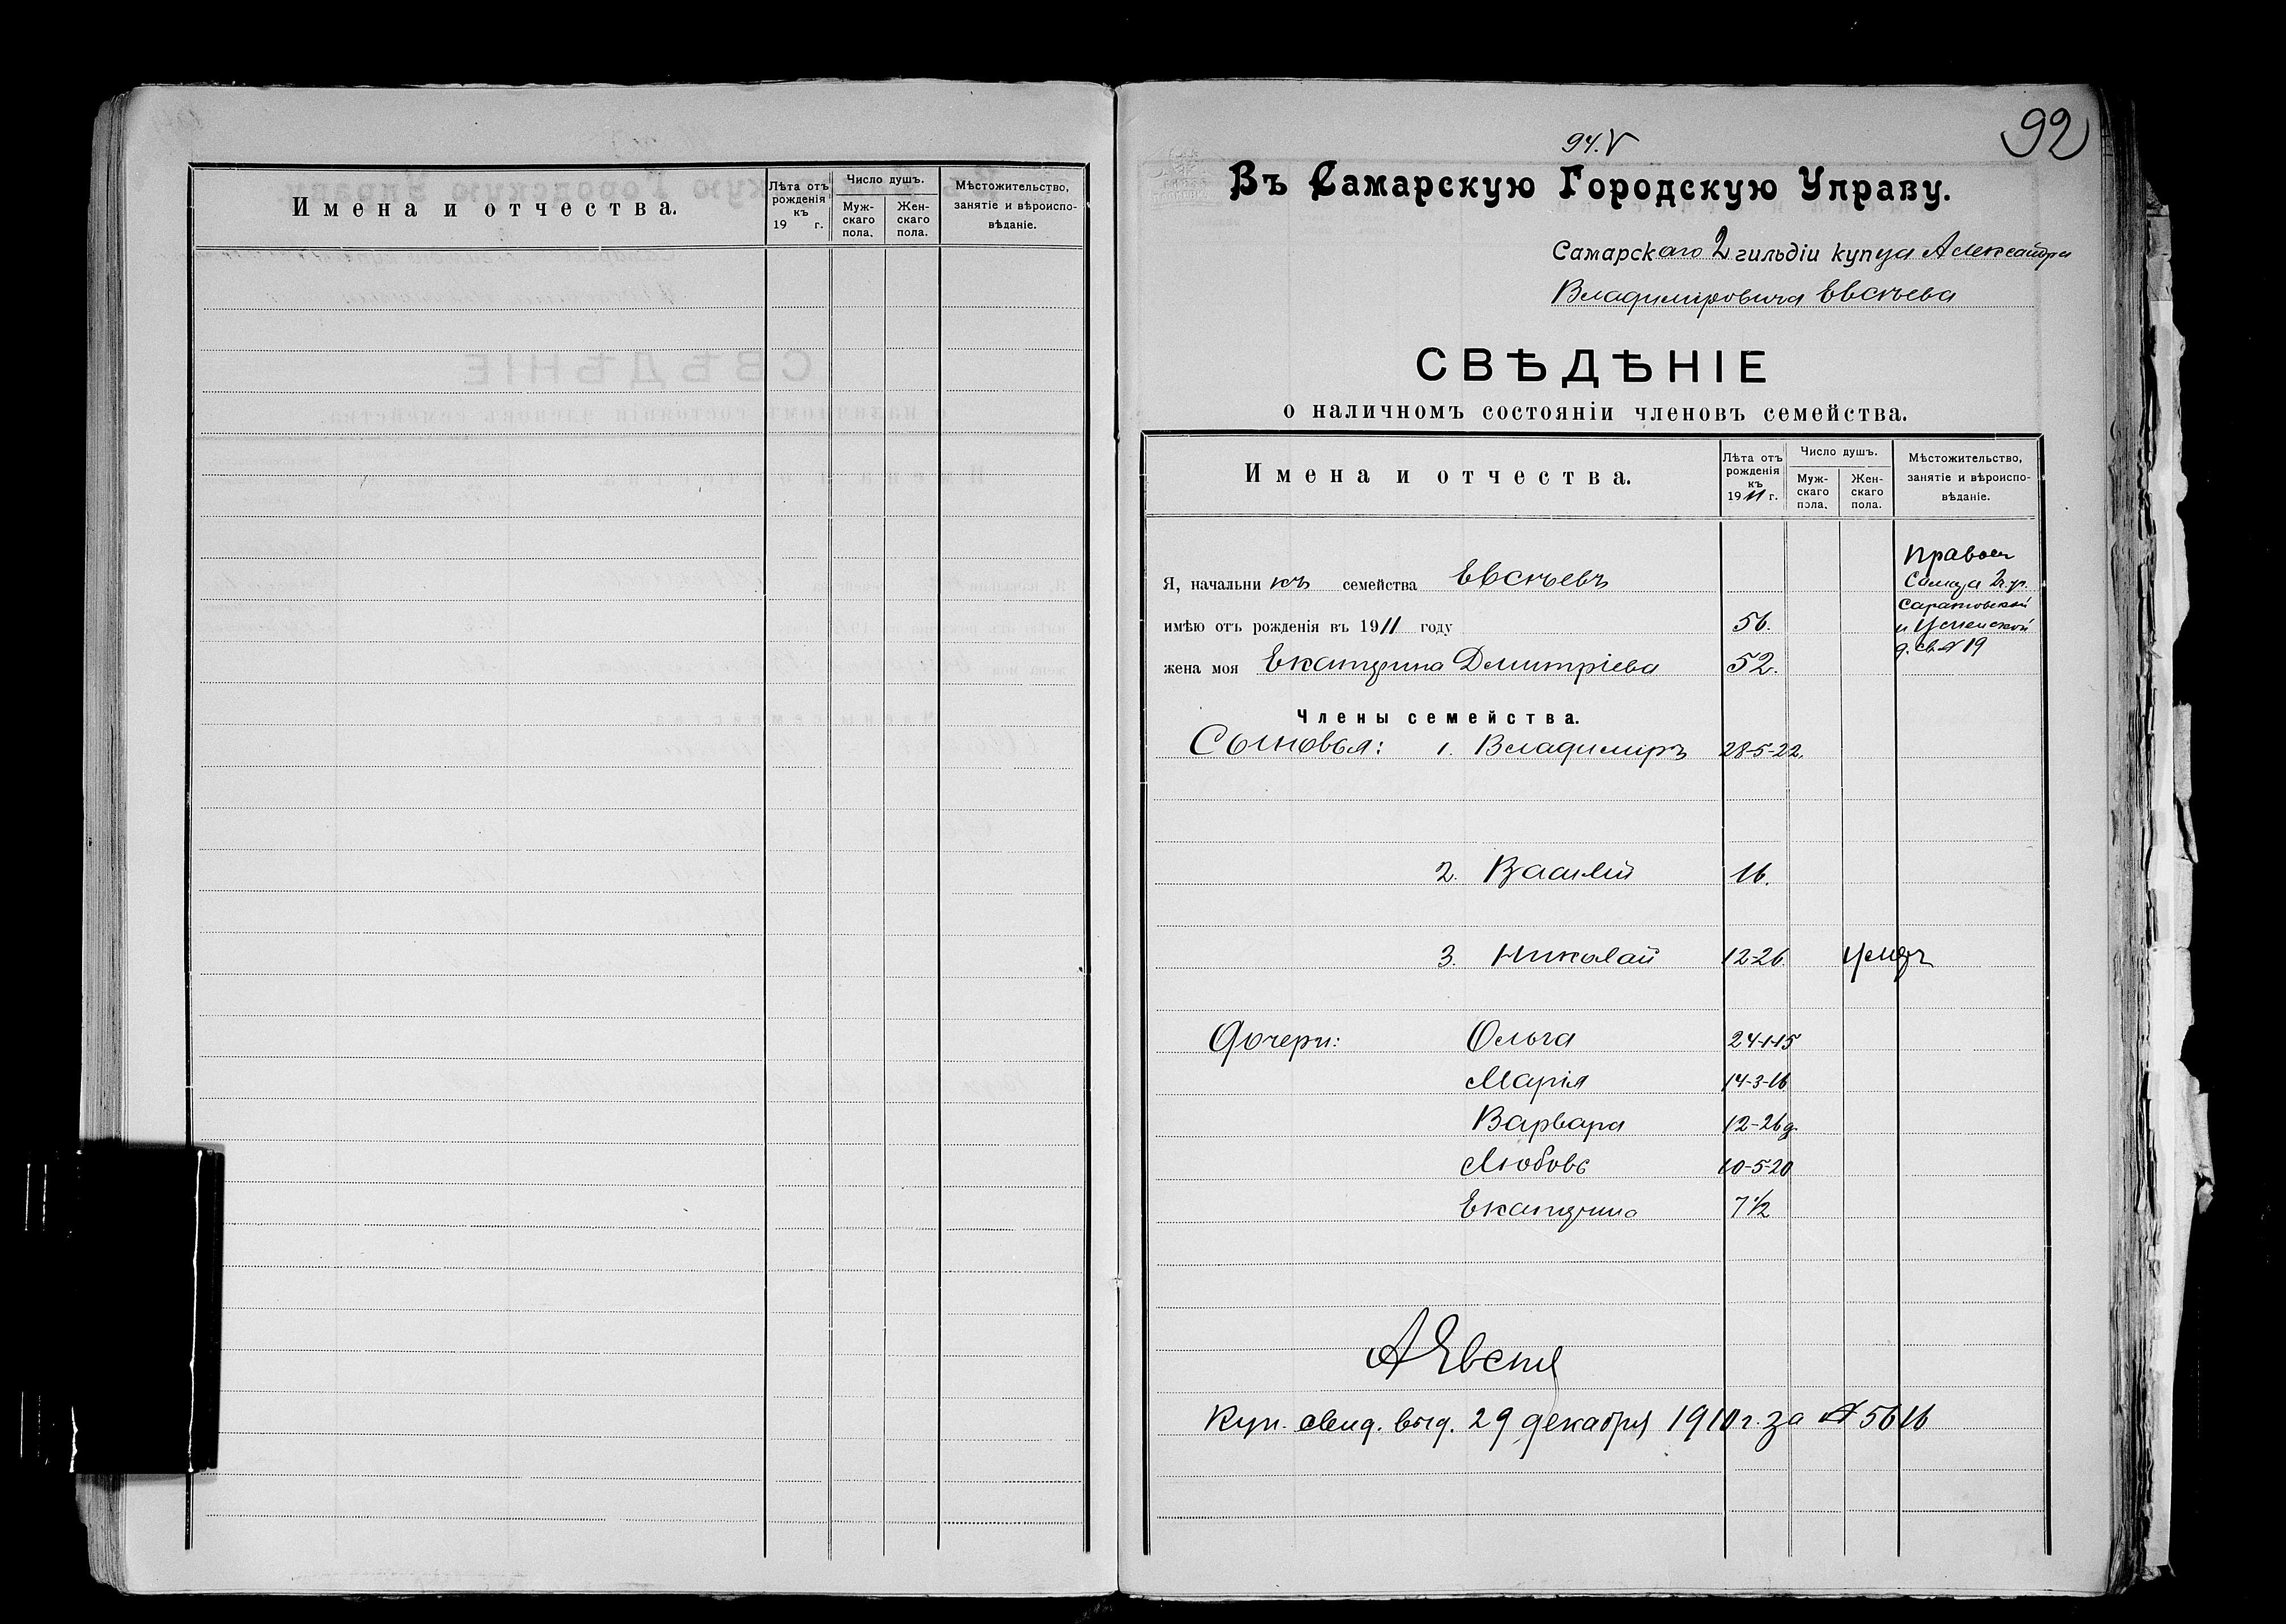 Имена и отчества.
Лѣта отъ рожденія къ 19 г.
Число душъ.
Муж-скаго пола.
Жен-скаго пола.
Мѣстожительство, занятіе и вѣроиспо-вѣданіе.
92
94.V
Въ Самарскую Городскую Управу.
Самарскаго 2 гильдіи купца Александра
Владиміровича Евсѣева
СВѢДѢНІЕ
о наличномъ состояніи членовъ семейства.
Имена и отчества.
Лѣта отъ рожденія къ 1911 г.
Число душъ.
Муж-скаго пола.
Жен-скаго пола.
Мѣстожительство, занятіе и вѣроиспо-вѣданіе.
Я, начальникъ семейства Евсѣевъ
имѣю отъ рожденія въ 1911 году 56.
жена моя Екатерина Дмитріева 52.
Правосл
Самара 2 г.
Саратовской
и Успенской
д. № 19
Члены семейства.
Сыновья: 1. Владиміръ 28-5-22.
2. Василій 16.
3. Николай 12-26.
Дочери: Ольга 24-1-15
Марія 14-3-16
Варвара 12-26 д.
Любовь 10-5-20
Екатерина 7 1/2
А Евсѣ
Куп. свид. выд. 29 декабря 1910 г. за № 5616